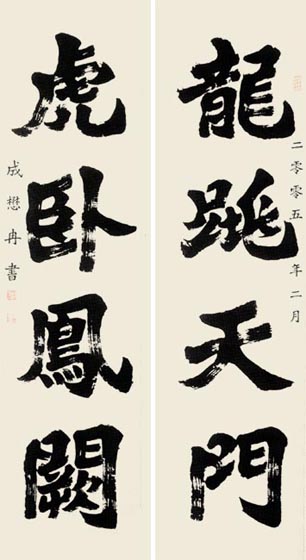 龍跳天門
二零零五年二月
虎卧鳳闕
成懋冉書